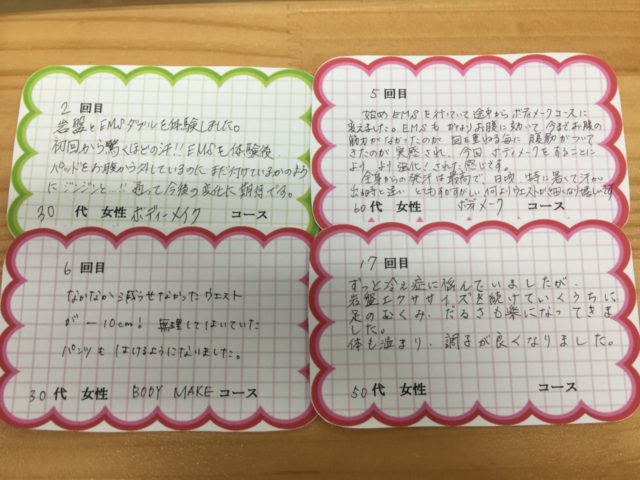 2 回目
岩盤とEMSダブルを体験しました。
初回から驚くほどの汗!! EMSを体験後、
パッドをお腹から外しているのに まだ付けているかのよう
にジンジンと…!! 通って今後の変化に期待です。
30 代 女性 ボディーメイク コース
5 回目
始め EMSを付けていて途中から ボディメークコースに
変えました。EMSも かなりお腹に効いて 今までお腹の
筋力がなかったのが 回を重ねる毎に 腹筋がついて
きたのが 実感され、今回 ボディメークをすることに
より より強化された感じです。
全身からの発汗は最高で、日頃 特に暑くて汗が
出る時と違い とてもすがすがしい 何よりウエストが細くなり嬉しいです
60 代 女性 ボディメーク コース
6 回目
なかなか減らせなかった ウエスト
が −10cm! 無理してはいていた
パンツも はけるようになりました。
30 代 女性 BODY MAKE コース
17 回目
ずっと冷え症に悩んでいましたが、
岩盤エクササイズを続けていくうちに
足のむくみ、だるさも楽になってきま
した。
体も温まり、調子が良くなりました。
50 代 女性 コース